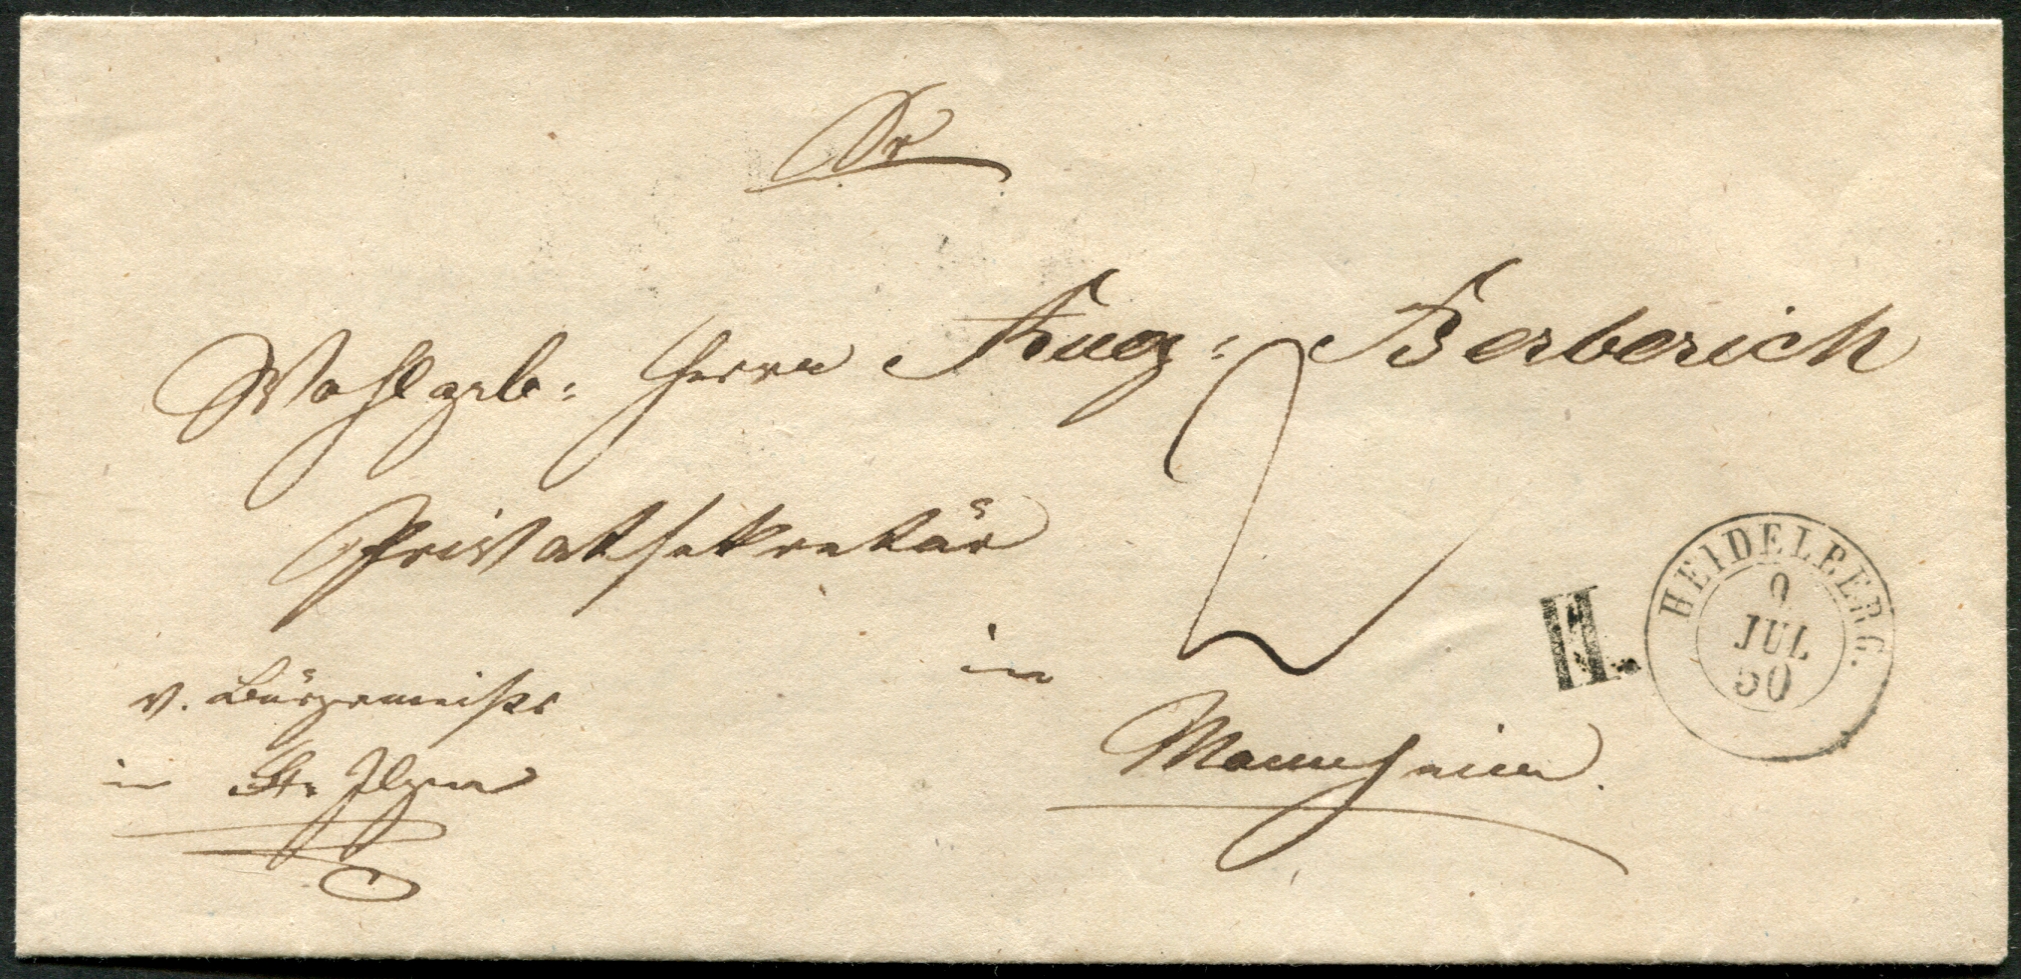 Sr
Wohlgeb: Herrn Aug: Berberich
Privatsekretär
in
Mannheim.
v. Bürgermeistr
in St. Ilgen
H.
HEIDELBERG.
9
JUL
50